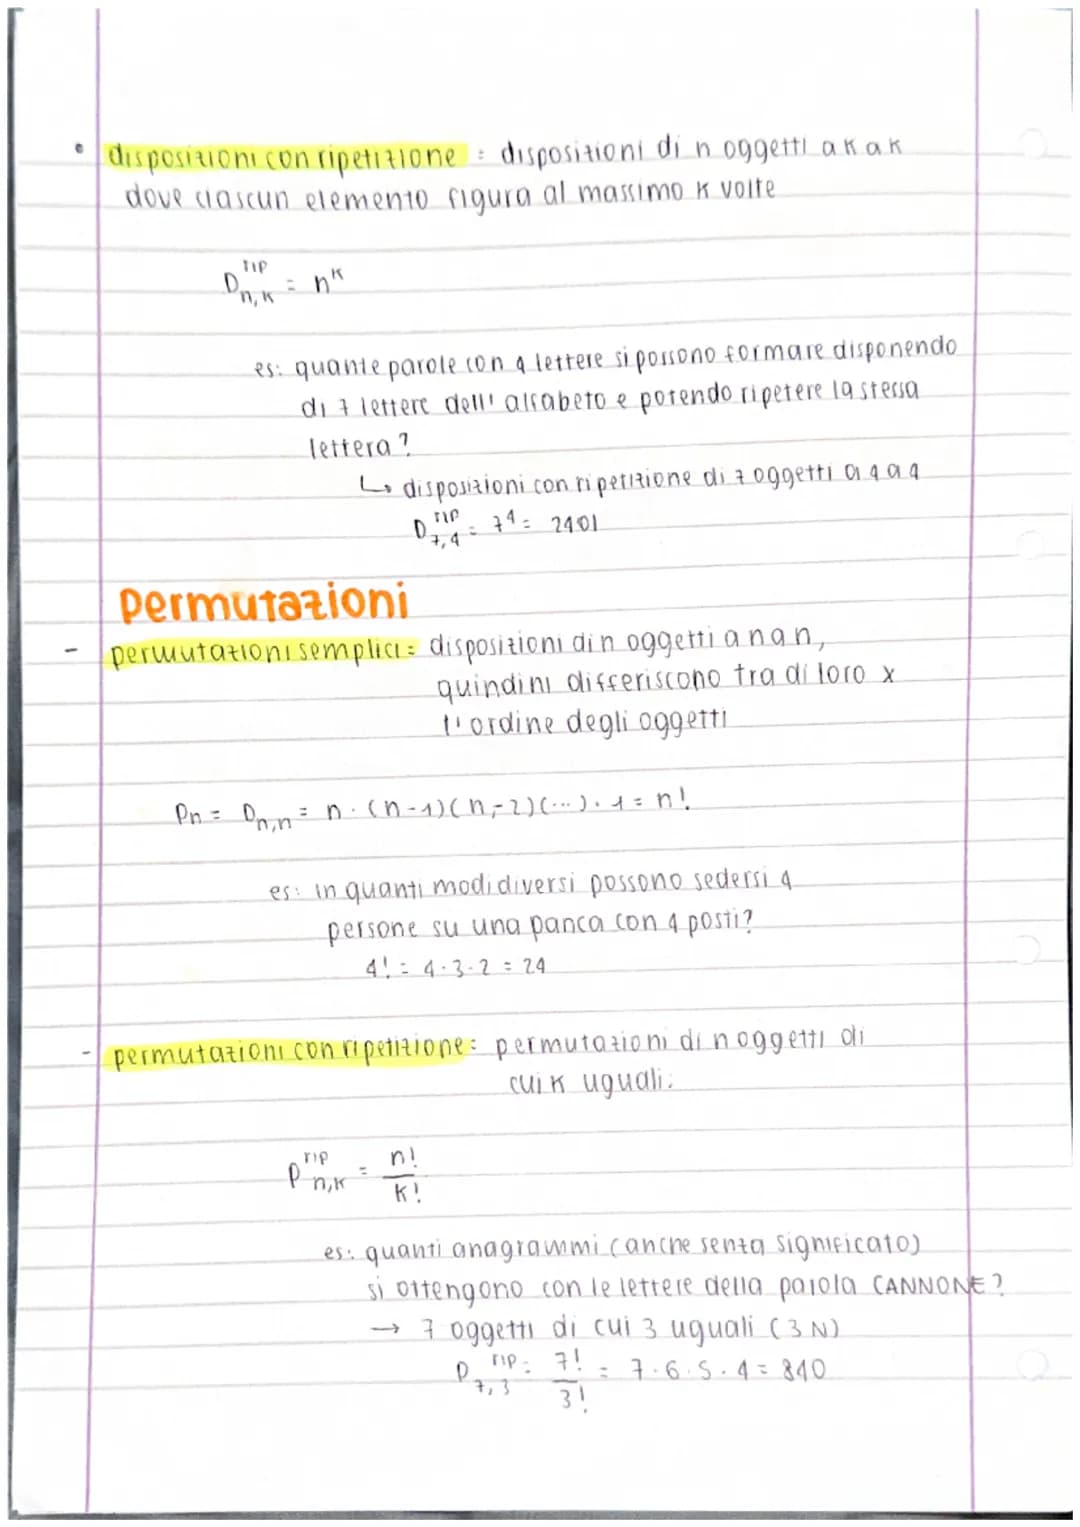 • disposizioni con ripetizione : disposizioni di n oggetti a k a k
dove ciascun elemento figura al massimo k volte
D^rip_n,k = n^k
es: quante parole con 4 lettere si possono formare disponendo
di 7 lettere dell' alfabeto e potendo ripetere la stessa
lettera?
↳ disposizioni con ripetizione di 7 oggetti a 4 a 4
D^rip_7,4 = 7^4 = 2401
Permutazioni
- permutazioni semplici: disposizioni di n oggetti a n a n,
quindini differiscono tra di loro x
l'ordine degli oggetti
Pn = Dn,n = n · (n-1)(n-2)(...) · 1 = n!
es: in quanti modi diversi possono sedersi 4
persone su una panca con 4 posti?
4! = 4·3·2 = 24
- permutazioni con ripetizione: permutazioni di n oggetti di
cui k uguali:
P^rip_n,k = n!/k!
es: quanti anagrammi (anche senza significato)
si ottengono con le lettere della parola CANNONE?
→ 7 oggetti di cui 3 uguali (3 N)
P^rip_7,3 = 7!/3! = 7·6·5·4 = 840